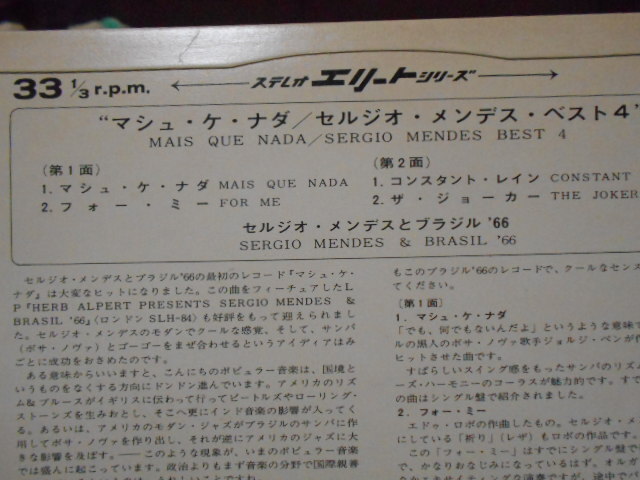 33 1/3 r.p.m. ステレオ エリートシリーズ
“マシュ・ケ・ナダ／セルジオ・メンデス・ベスト4”
MAIS QUE NADA/SERGIO MENDES BEST 4
(第1面)
1. マシュ・ケ・ナダ MAIS QUE NADA
2. フォー・ミー FOR ME
(第2面)
1. コンスタント・レイン CONSTANT
2. ザ・ジョーカー THE JOKER
セルジオ・メンデスとブラジル '66
SERGIO MENDES & BRASIL '66
セルジオ・メンデスとブラジル'66の最初のレコード『マシュ・ケ・
ナダ』は大変なヒットになりました。この曲をフィーチュアしたL
P『HERB ALPERT PRESENTS SERGIO MENDES &
BRASIL '66』(ロンドン SLH-84) も好評をもって迎えられまし
た。セルジオ・メンデスのモダンでクールな感覚、そして、サンバ
(ボサ・ノヴァ) とゴーゴーをまぜ合わせるというアイディアはみ
ごとに成功をおさめたのです。
ある意味からいいますと、こんにちのポピュラー音楽は、国境と
いうものをなくする方向にドンドン進んでいます。アメリカのリズ
ム& ブルースがイギリスに伝わって行ってビートルズやローリング・
ストーンズを生みおとし、そこへ更にインド音楽の影響が入ってく
る。あるいは、アメリカのモダン・ジャズがブラジルのサンバに作
用してボサ・ノヴァを作り出し、それが逆にアメリカのジャズに大
きな影響を及ぼす。——このような現象が、いまのポピュラー音楽
では盛んに起こっています。政治よりもまず音楽の分野で国際親善
もこのブラジル'66のレコードで、クールなセンス
てください。
〔第1面〕
1. マシュ・ケ・ナダ
「でも、何でもないんだよ」というような意味で
ルの黒人のボサ・ノヴァ歌手ジョルジ・ベンが作
ヒットさせた曲です。
すばらしいスイング感をもったサンバのリズム
ーズ・ハーモニーのコーラスが魅力的です。すで
の曲はシングル盤で紹介されました。
2. フォー・ミー
エドゥ・ロボの作曲したもの。セルジオ・メ
にしている「祈り」(レザ) もロボの作品です。
この「フォー・ミー」はすでにシングル盤で
で、かなりおなじみになっているはず。オルガ